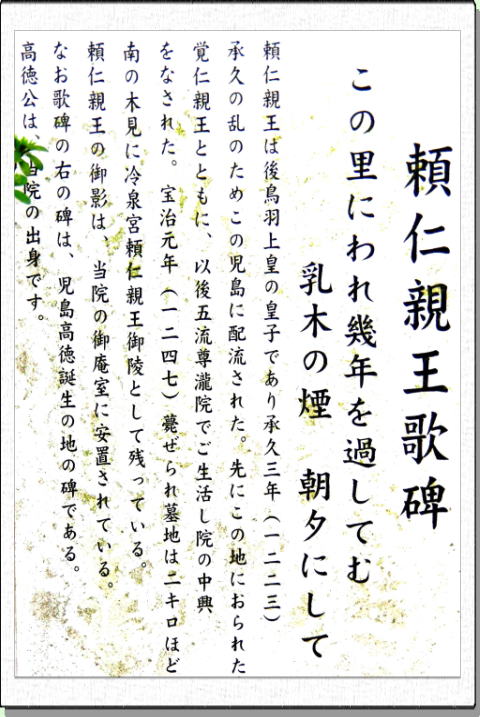 頼仁親王歌碑
この里にわれ幾年を過してむ
乳木の煙　朝夕にして
頼仁親王は後鳥羽上皇の皇子であり承久三年（一二二三）
承久の乱のためこの児島に配流された。先にこの地におられた
覚仁親王とともに、以後五流尊瀧院でご生活し院の中興
をなされた。宝治元年（一二四七）薨ぜられ墓地は二キロほど
南の木見に冷泉宮頼仁親王御陵として残っている。
頼仁親王の御影は、当院の御庵室に安置されている。
なお歌碑の右の碑は、児島高徳誕生の地の碑である。
高徳公は、当院の出身です。